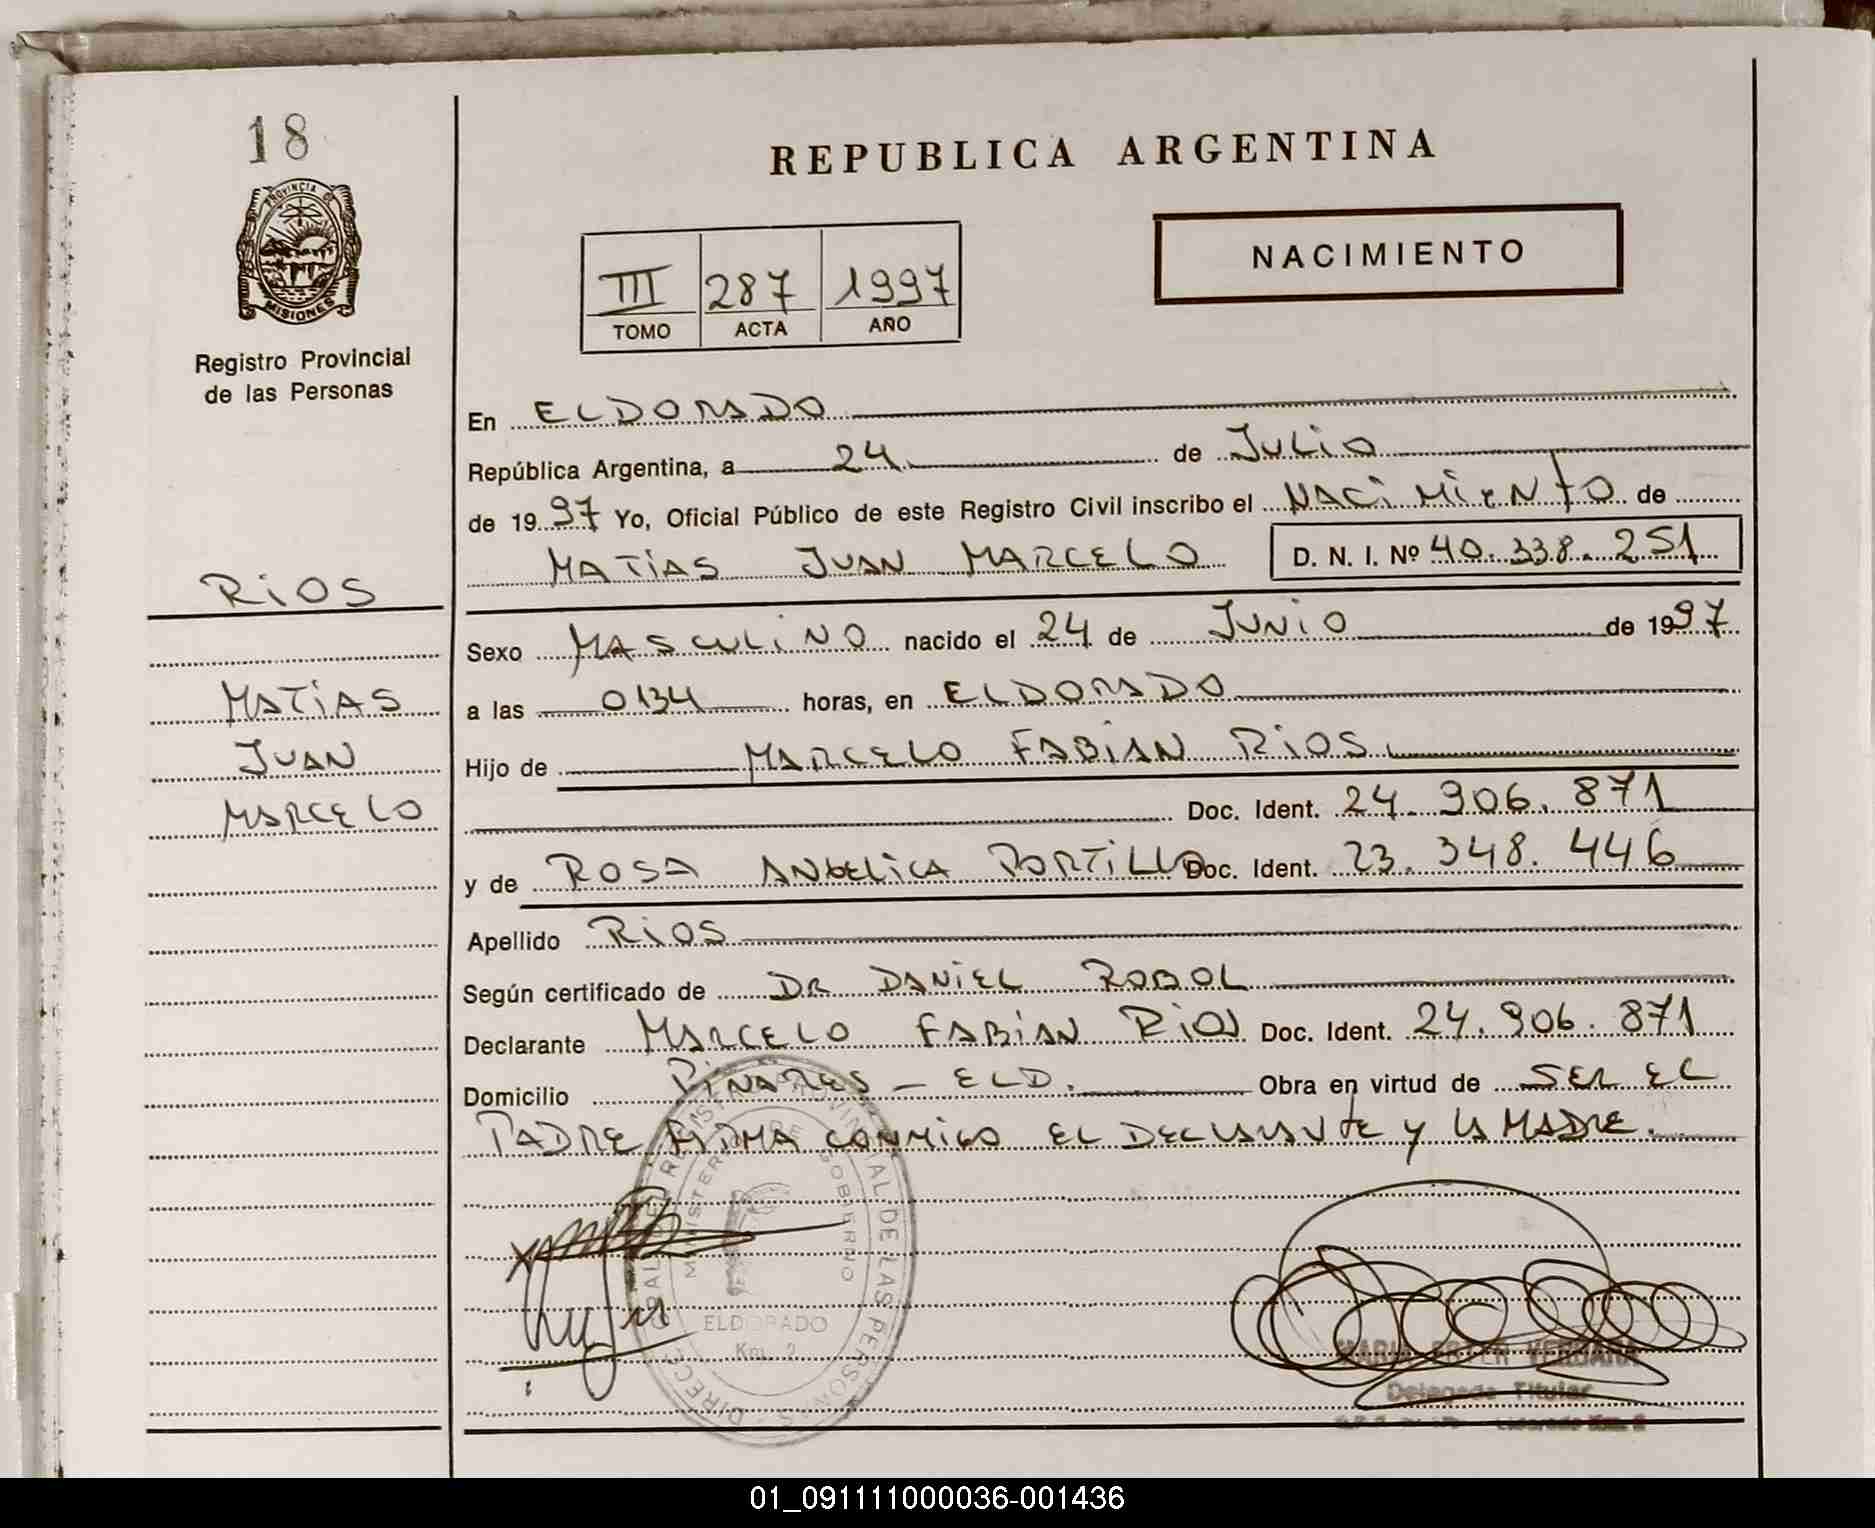 18
PROVINCIA DE
MISIONES
Registro Provincial
de las Personas
RIOS
MATÍAS
JUAN
MARCELO
REPUBLICA ARGENTINA
III 287 1997
TOMO ACTA AÑO
NACIMIENTO
En ELDORADO
República Argentina, a 24 de JULIO
de 1997 Yo, Oficial Público de este Registro Civil inscribo el NACIMIENTO de
MATÍAS JUAN MARCELO D. N. I. Nº 40.338.251
Sexo MASCULINO nacido el 24 de JUNIO de 1997
a las 0134 horas, en ELDORADO
Hijo de MARCELO FABIÁN RIOS
Doc. Ident. 24.906.871
y de ROSA ANGELICA PORTILLO Doc. Ident. 23.348.446
Apellido RIOS
Según certificado de DR DANIEL ROBOL
Declarante MARCELO FABIÁN RIOS Doc. Ident. 24.906.871
Domicilio PINARES - ELD. Obra en virtud de SER EL
PADRE FIRMA CONMIGO EL DECLARANTE Y LA MADRE.
MINISTERIO DE GOBIERNO
ELDORADO
Km. 2
MARIA ESTER VERGARA
Delegada Titular
01_091111000036-001436